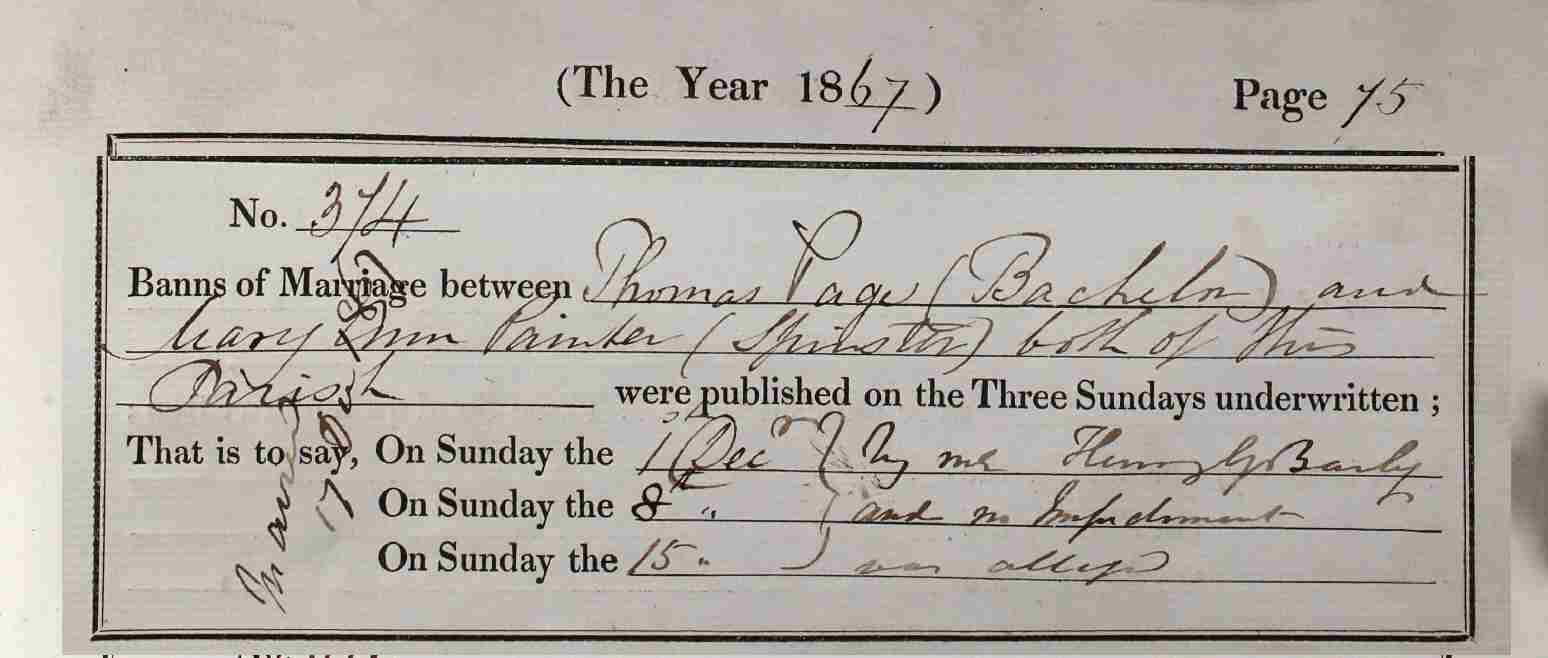 (The Year 1867)
Page 75
No. 374
Banns of Marriage between Thomas Page (Bachelor) and
Mary Ann Painter (Spinster) both of this
Parish were published on the Three Sundays underwritten ;
That is to say, On Sunday the 1st Decr } by me Henry G Barly
On Sunday the 8th " } and no Impediment
On Sunday the 15 " } was alleged
Married
17 1867